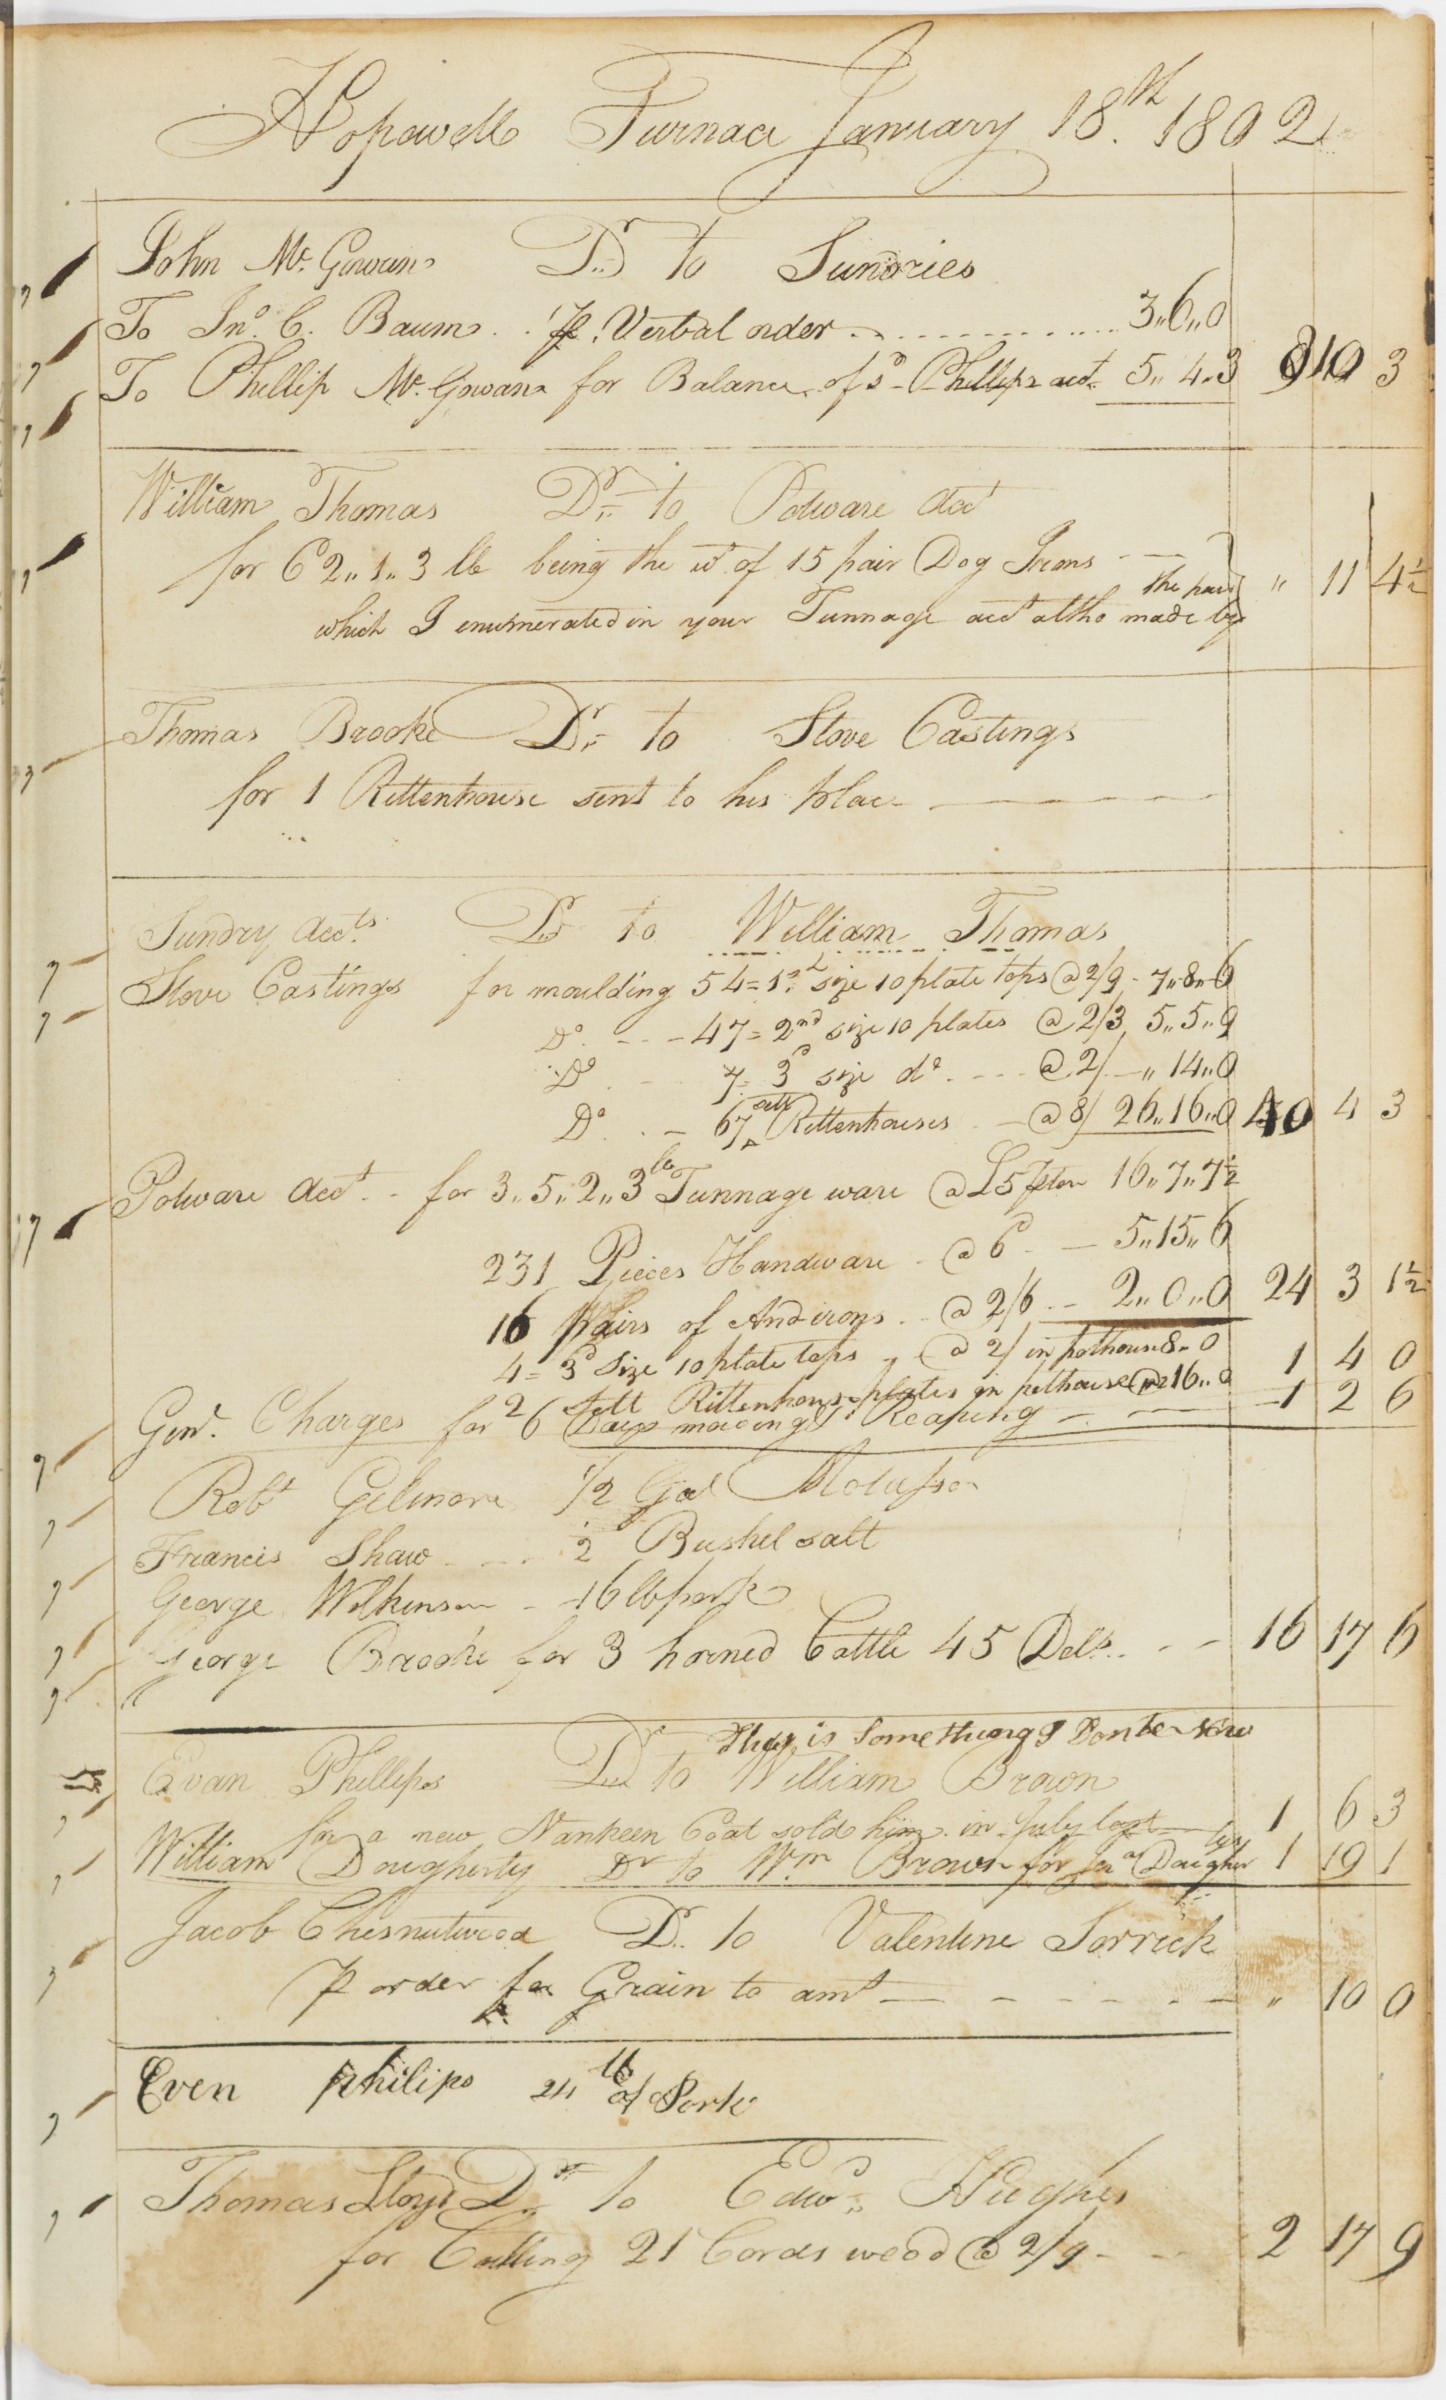 Hopewell Furnace January 18th 1802
John McGowan Dr to Sundries
To Jno. C. Baum . . Pr. Verbal order . . . . 3,,6,,0
To Phillip McGowan for Balance of sd Phillips acct 5,,4,,3 8 10 3
William Thomas Dr to Potware Acct
for C 2,,1,,3 lb being the wt of 15 pair Dog Irons — the pair " 11 4½
which I enumerated in your Tunnage acct altho made by
Thomas Brooke Dr to Stove Castings
for 1 Rittenhouse sent to his place
Sundry Accts. Dr to William Thomas
Stove Castings for moulding 54 = 1st size 10 plate tops @ 2/9 - 7,,8,,6
Do. - - - 47 = 2nd size 10 plates @ 2/3 5,,5,,9
Do - 7 = 3d size do. - - - @ 2/ - " 14,,0
Do. - 67 Rittenhouses - @ 8/ 26,,16,,0 40 4 3
Potware Acct. - for 3,,5,,2,,3 lb Tunnage ware @ £5 pr ton 16,,7,,7½
231 Pieces Handware - @ 6d - 5,,15,,6
16 Pairs of Andirons - @ 2/6 - 2,,0,,0 24 3 1½
4 = 3d size 10 plate tops @ 2/ in pothouse 8,,0 1 4 0
2 Rittenhouse plates in pothouse @ 16,,0
Genl. Charges for 6 Days mowing & Reaping - - 1 2 6
Robt Gilmore 1/2 Gal Molasses
Francis Shaw - - - ½ Bushel salt
George Wilkinson - 16 lb pork
George Brooke for 3 horned Cattle 45 Dols. - - 16 17 6
This is Something I Dont Know
Evan Phillips Dr to William Brown
for a new Nankeen Coat sold him in July last 1 6 3
William Dougherty Dr to Wm Brown for Jas Daugherty 1 19 1
Jacob Chesnutwood Dr. to Valentine Sorrick
P order for Grain to amt - - - - " 10 0
Even Philips 24 lb of Pork
Thomas Lloyd Dr to Edwd. Hughes
for Cutting 21 Cords wood @ 2/9 - - 2 17 9